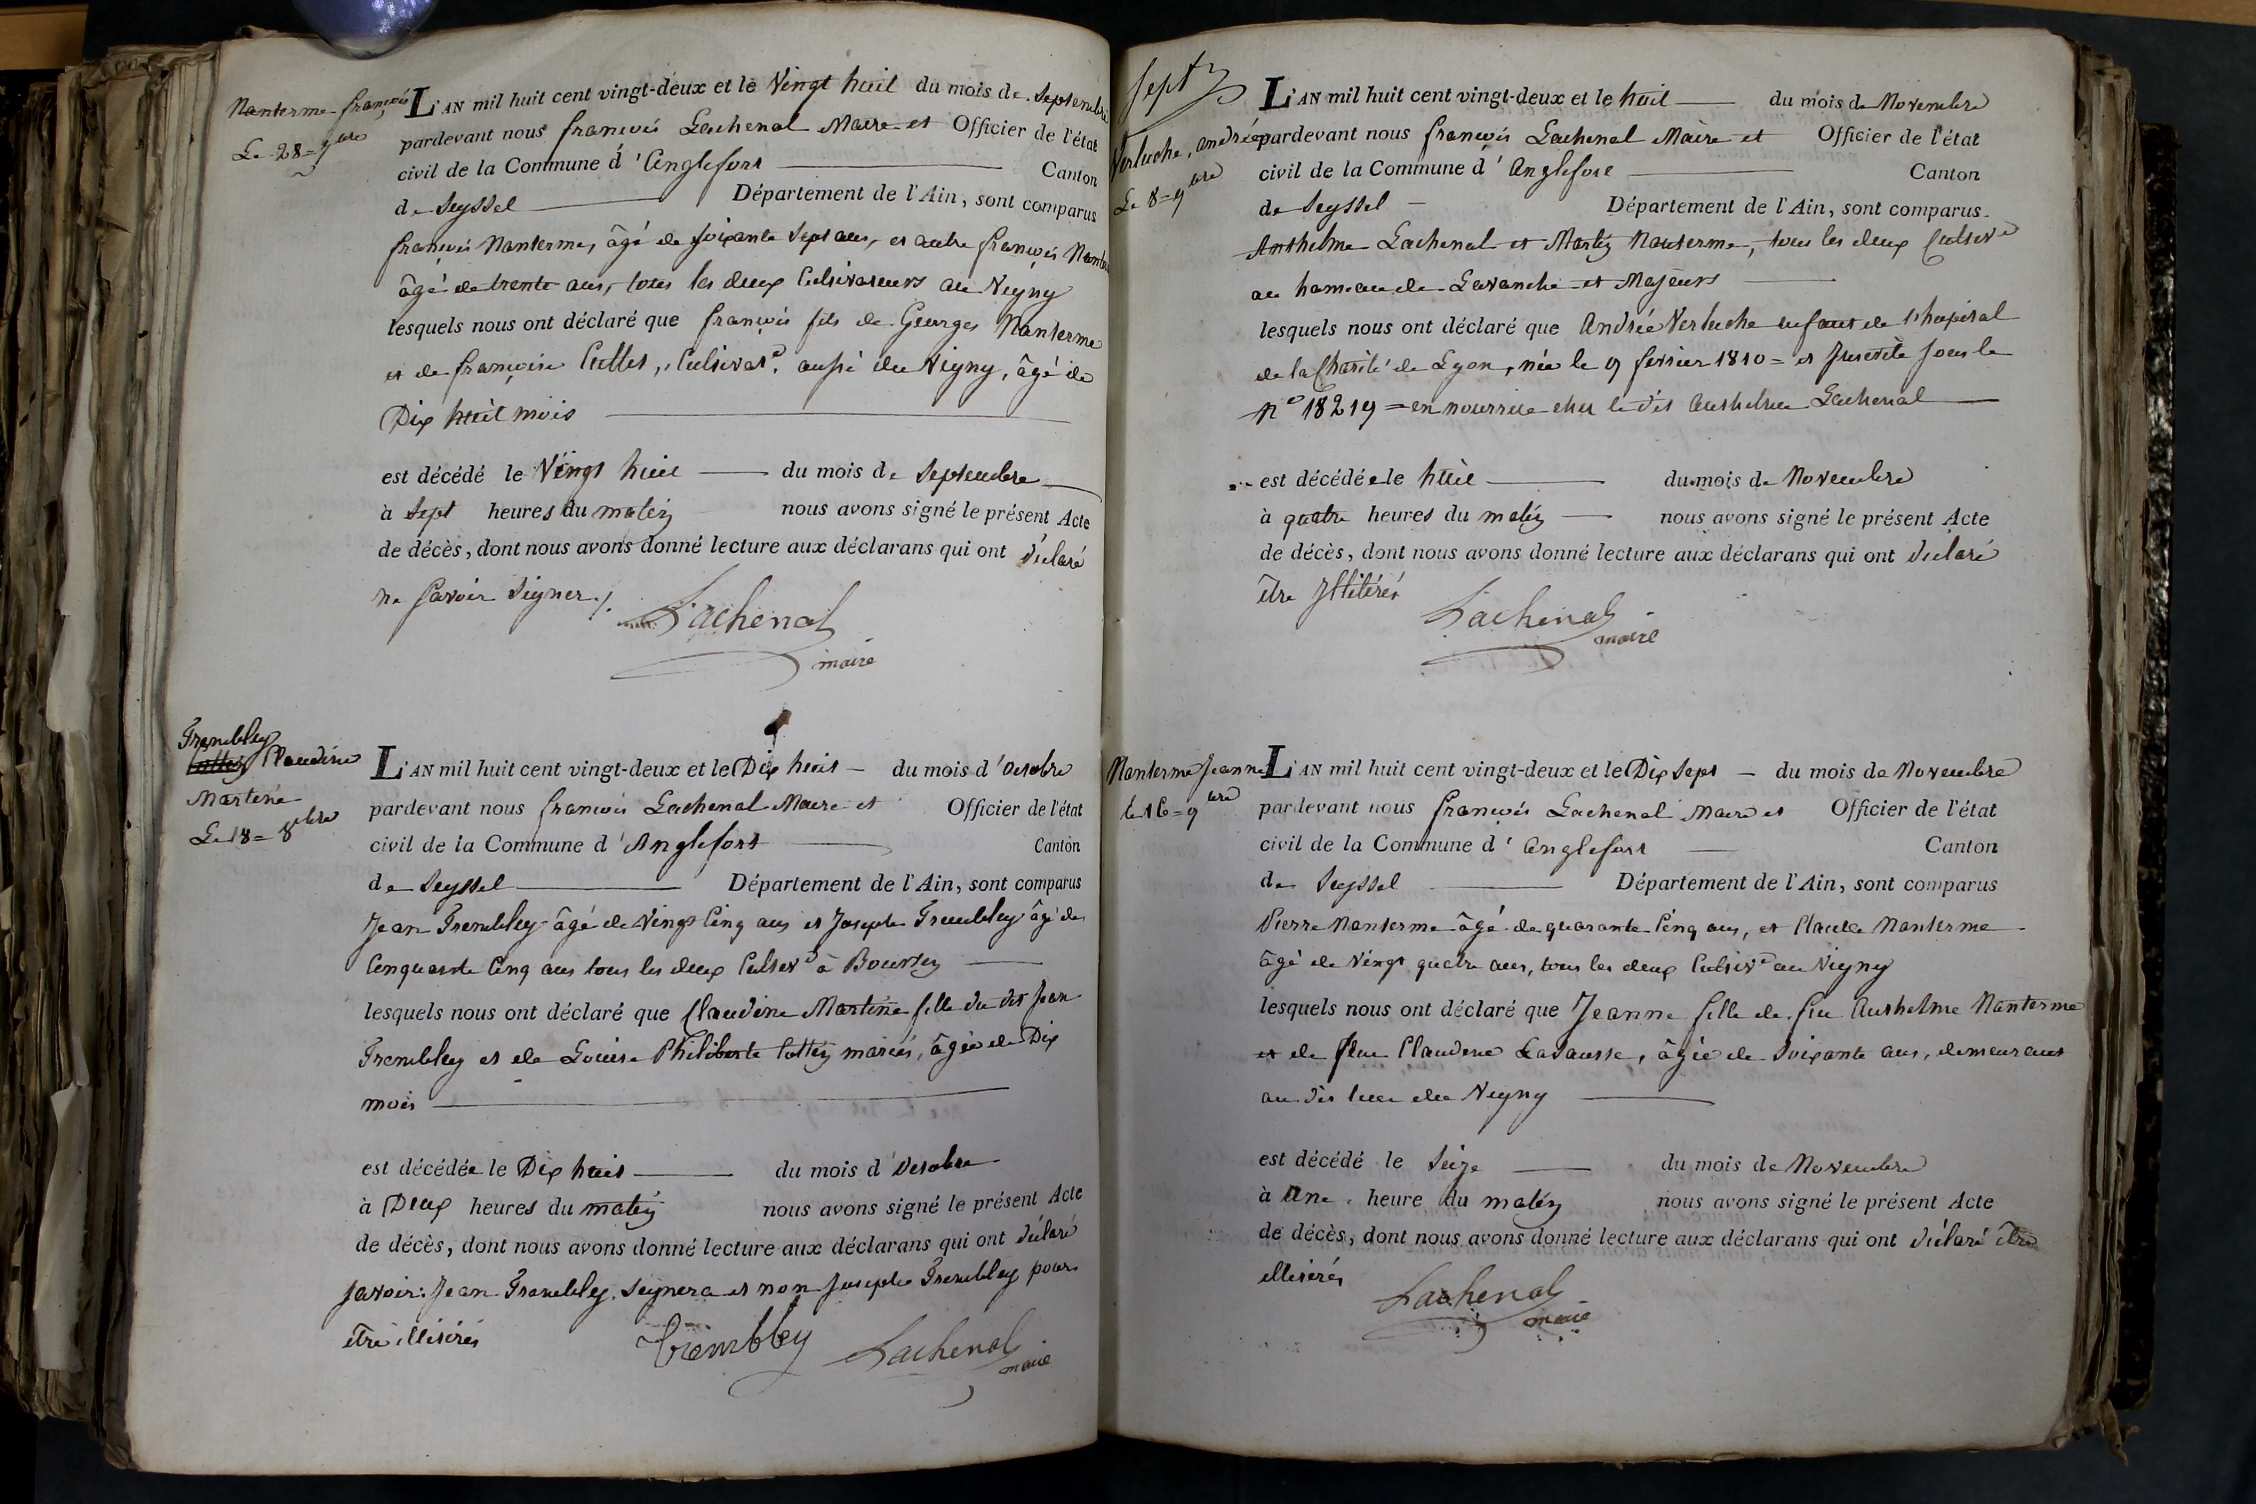 Nanterme françois
Le 28 = 7bre
L'AN mil huit cent vingt-deux et le Vingt huit du mois de Septembre
pardevant nous françois Lachenal Maire et Officier de l'état
civil de la Commune d'Anglefort Canton
de Seyssel Département de l'Ain, sont comparus
françois Nanterme, âgé de soixante sept ans, et autre françois Nanterme
âgé de trente ans, tous les deux Cultivateurs au Vigny
lesquels nous ont déclaré que françois fils de Georges Nanterme
et de françoise Cullet, Cultivat.rs aussi du Vigny, âgé de
Dix huit mois
est décédé le Vingt huit du mois de Septembre
à Sept heures du matin nous avons signé le présent Acte
de décès, dont nous avons donné lecture aux déclarans qui ont déclaré
ne savoir signer ./.
Lachenal
maire
Trembley
Claudine
Martine
Le 18 = 8bre
L'AN mil huit cent vingt-deux et le Dix huit du mois d'Octobre
pardevant nous françois Lachenal Maire et Officier de l'état
civil de la Commune d'Anglefort Canton
de Seyssel Département de l'Ain, sont comparus
Jean Trembley âgé de Vingt Cinq ans et Joseph Trembley âgé de
Cinquante Cinq ans tous les deux Cultiv.rs à Boursin
lesquels nous ont déclaré que Claudine Martine fille du dit Jean
Trembley et de Louise Philiberte Cottin mariés, âgée de Dix
mois
est décédée le Dix huit du mois d'Octobre
à Deux heures du matin nous avons signé le présent Acte
de décès, dont nous avons donné lecture aux déclarans qui ont déclaré
savoir: Jean Trembley signera et non Joseph Trembley pour
être illitérés
Trembley Lachenal
maire
Sept
Verluche, andrée
Le 8 = 9bre
L'AN mil huit cent vingt-deux et le huit du mois de Novembre
pardevant nous françois Lachenal Maire et Officier de l'état
civil de la Commune d'Anglefort Canton
de Seyssel Département de l'Ain, sont comparus
Anthelme Lachenal et Martin Nanterme, tous les deux Cultiv.rs
au hameau de Lavanche et Majeurs
lesquels nous ont déclaré que Andrée Verluche enfant de l'hopital
de la Charité de Lyon, née le 9 fevrier 1810 = et Inscrite sous le
n.o 18219 = en nourrice chez le dit Anthelme Lachenal
est décédée le huit du mois de Novembre
à quatre heures du matin nous avons signé le présent Acte
de décès, dont nous avons donné lecture aux déclarans qui ont déclaré
être Illitérés
Lachenal
maire
Nanterme Jeanne
le 16 = 9bre
L'AN mil huit cent vingt-deux et le Dix Sept du mois de Novembre
pardevant nous françois Lachenal Maire et Officier de l'état
civil de la Commune d'Anglefort Canton
de Seyssel Département de l'Ain, sont comparus
Pierre Nanterme âgé de quarante Cinq ans, et Claude Nanterme
âgé de Vingt quatre ans, tous les deux Cultiv.rs au Vigny
lesquels nous ont déclaré que Jeanne fille de feu Anthelme Nanterme
et de feue Claudine Lasausse, âgée de soixante ans, demeurant
au dit lieu du Vigny
est décédé le Seize du mois de Novembre
à une heure du matin nous avons signé le présent Acte
de décès, dont nous avons donné lecture aux déclarans qui ont déclaré être
illitérés
Lachenal
maire